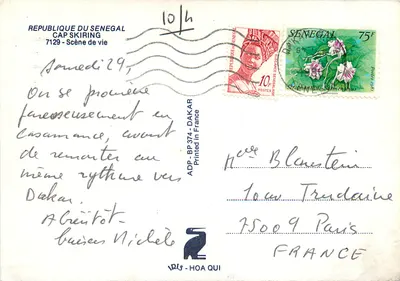 10/4
REPUBLIQUE DU SENEGAL
CAP SKIRING
7129 - Scène de vie
SENEGAL 75F
10F
Samedi 29,
On se promène
paresseusement en
Casamance, avant
de remonter au
même rythme vers
Dakar.
A bientôt.
baisers Michèle
ADP - BP 374 - DAKAR
Printed in France
Blaustein
Trudaine
75009 Paris
FRANCE
HOA QUI